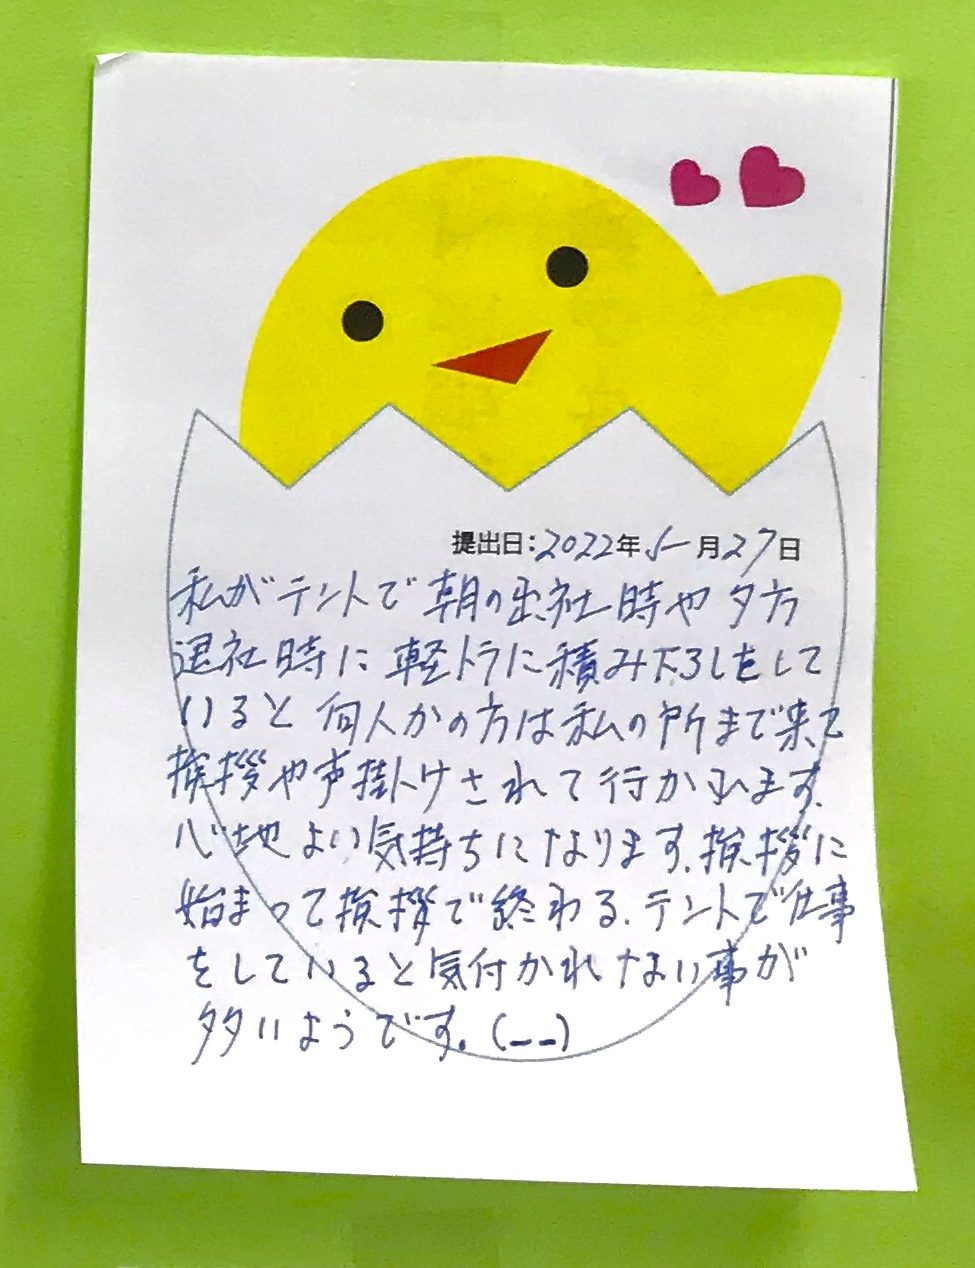 提出日:2022年5月27日
私がテントで朝の出社時や夕方
退社時に軽トラに積み下ろしをして
いると何人かの方は私の所まで来て
挨拶や声掛けされて行かれます。
心地よい気持ちになります。挨拶に
始まって挨拶で終わる。テントで仕事
をしていると気付かれない事が
多いようです。(__)